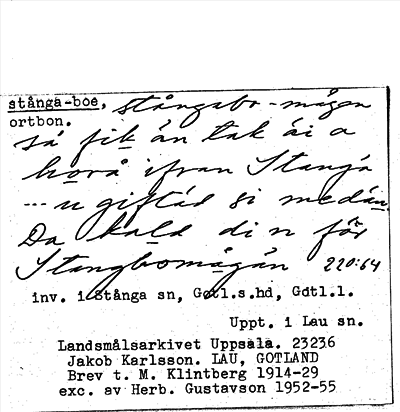 stånga-boe, stångabo-mågen
ortbon.
så fik än tak äi a
horå ifran Stangå
--- u giftäd si medän
Da kald di n för
Stangbomågän 220:64
inv. i Stånga sn, Gotl.s.hd, Gdtl.l.
Uppt. i Lau sn.
Landsmålsarkivet Uppsala. 23236
Jakob Karlsson. LAU, GOTLAND
Brev t. M. Klintberg 1914-29
exc. av Herb. Gustavson 1952-55